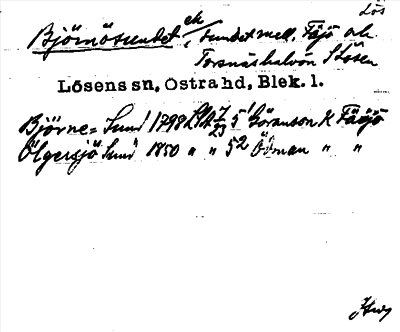 Lös
Björnösundet ek, sundet mell. Fäjö och
Torsnäshalvön S Lösen
Lösens sn, Östra hd, Blek. l.
Björne=Sund 1798 5¹ Göranson K Fäjö
Ölgersjö Sund 1850 " " 5² Ödman " "